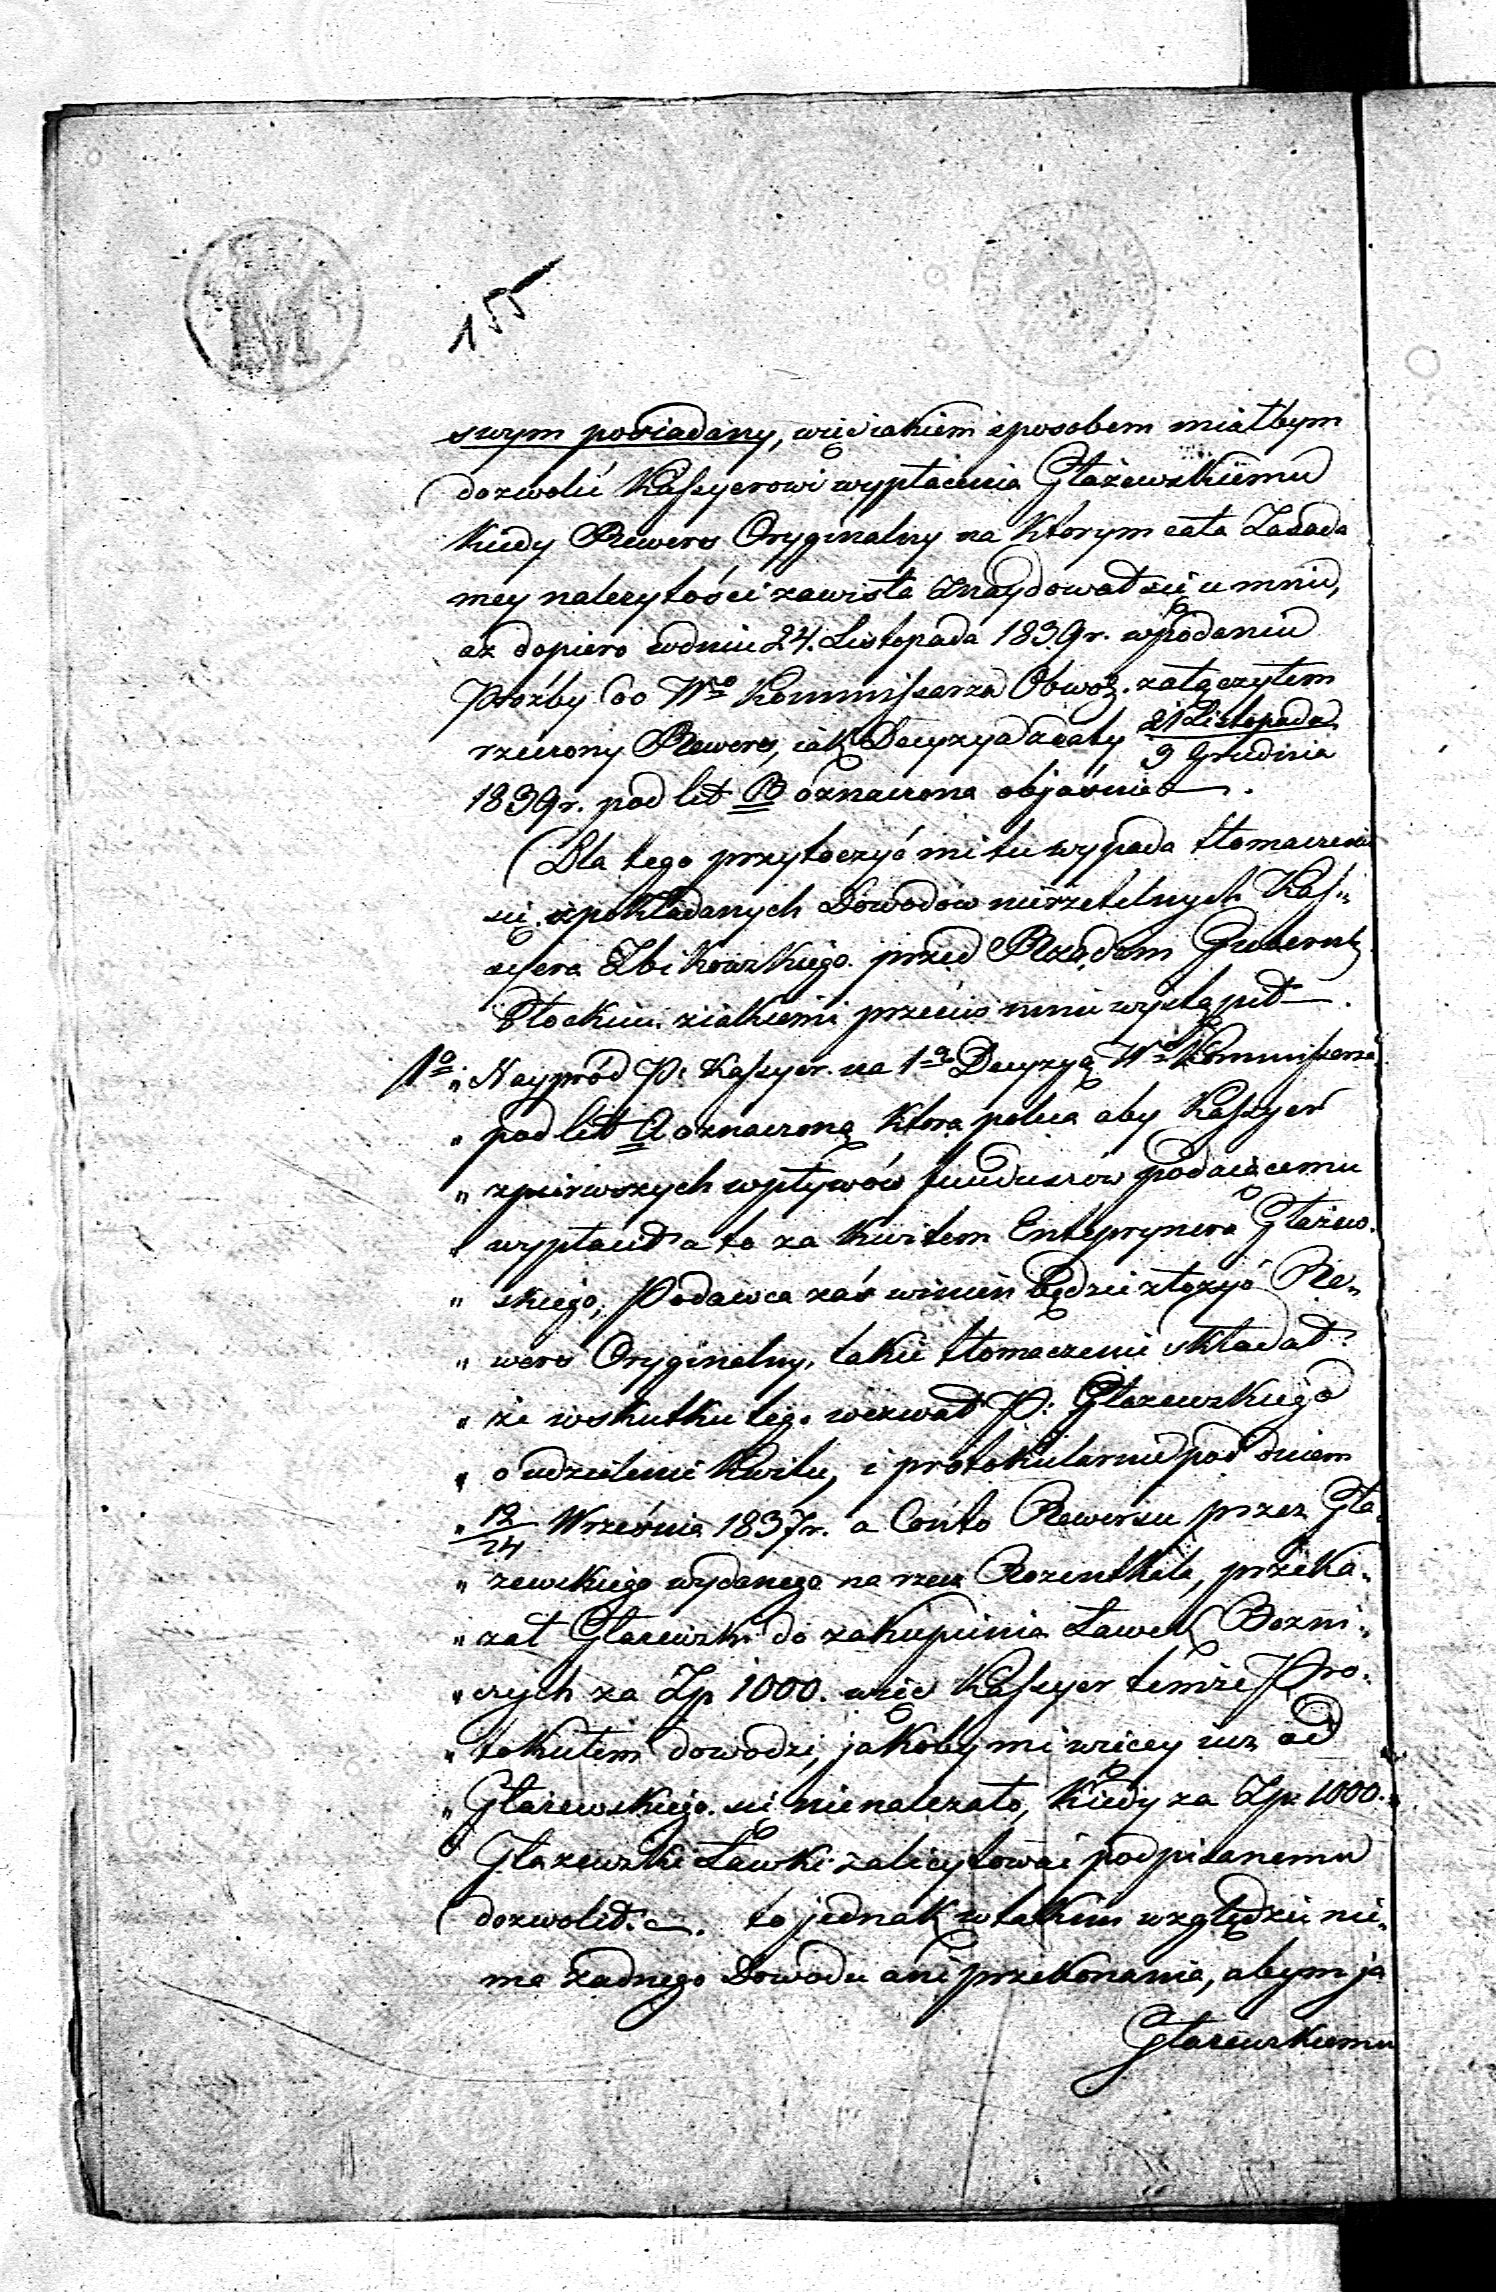 155
swym posiadany, więc iakiem sposobem miałbym
dozwolić Kassyerowi wypłacenia Głażewskiemu
kiedy Rewers Oryginalny na Ktorym cała Zasada
mey należytości zawisła znaydował się u mnie,
aż dopiero wdniu 24. Listopada 1839 r. wpodaniu
Proźby do Wgo Kommissarza Obwod. załączyłem
rzeczony Rewers, iak Decyzya zdaty 21 Listopada / 3 Grudnia
1839 r. pod lit B oznaczona objaśnia.
Dla tego przytoczyć mi tu wypada tłomaczenie
się zpokładanych Dowodow nierzetelnych Kas„
syera Zbikowskiego przed Rządem Gubernl.
Płockim ziakiemi przeciw mnie wystąpił.
1o „Nayprod P. Kassyer na 1a Decyzyą Wo Kommissarza
„ pod lit A oznaczoną Ktora poleca aby Kassyer
„ zpierwszych wpływów funduszow podaiącemu
„ wypłacił a to za Kwitem Enteprynera Głażew„
„ skiego, Podawca zaś winien będzie złożyć Re„
„ wers Oryginalny, takie tłomaczenie składał:
„ że wskutku tego wezwał P. Głazewskiego
„ o udzielenie Kwitu, i protokularnie pod dniem
„ 12/24 Września 1837 r. a Conto Rewersu przez Gła„
„ zewskiego wydanego na rzecz Rozenthala, przeka„
„ zał Głazewski do zakupienia Ławek Bozni„
„ czych za Zp 1000. więc Kassyer temże Pro„
„ tokułem dowodzi, jakoby mi więcey iuż od
„ Głażewskiego się nienależało, kiedy za Zp. 1000.„
„ Głazewski Ławki zalicytować podpisanemu
dozwolił. to jednak wtakim względzie nie„
ma żadnego Dowodu ani przekonania, abym ja
Głażewskiemu